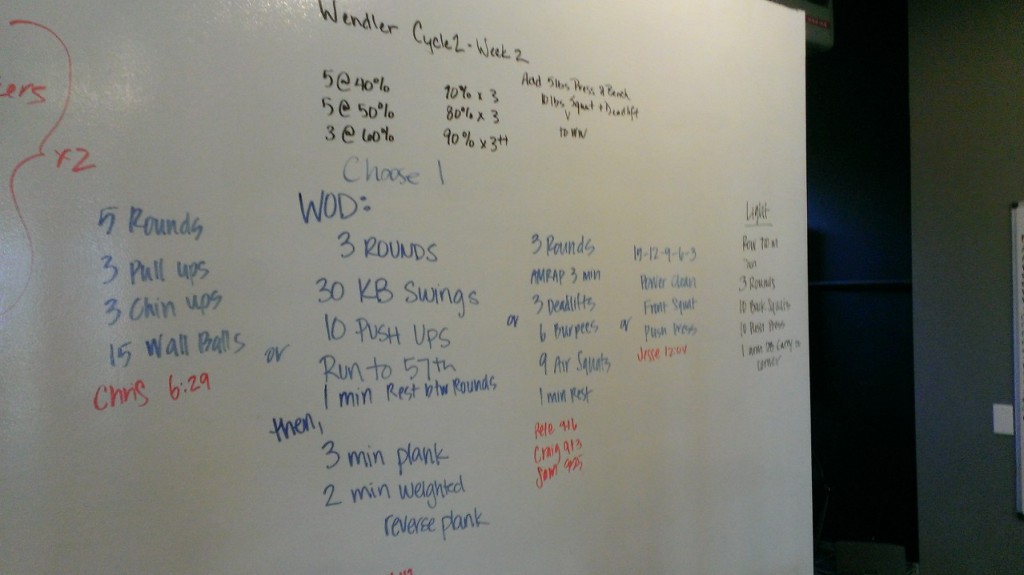 Wendler Cycle2 - Week 2
5 @ 40%
5 @ 50%
3 @ 60%
70% x 3
80% x 3
90% x 3++
Add 5lbs Press & Bench
10 lbs Squat + Deadlift
Choose 1
ers
x2
5 Rounds
3 Pull ups
3 Chin ups
15 Wall Balls
Chris 6:29
or
WOD:
3 ROUNDS
30 KB Swings
10 PUSH UPS
Run to 57th
1 min Rest btw Rounds
then,
3 min plank
2 min weighted
reverse plank
or
3 Rounds
AMRAP 3 min
3 Deadlifts
6 Burpees
9 Air Squats
1 min Rest
Craig
Sam
or
15-12-9-6-3
Power Clean
Front Squat
Push Press
Jesse 12:04
Light
Row
3 Rounds
10 Back Squats
10 Push Press
1 arm Carry to
corner